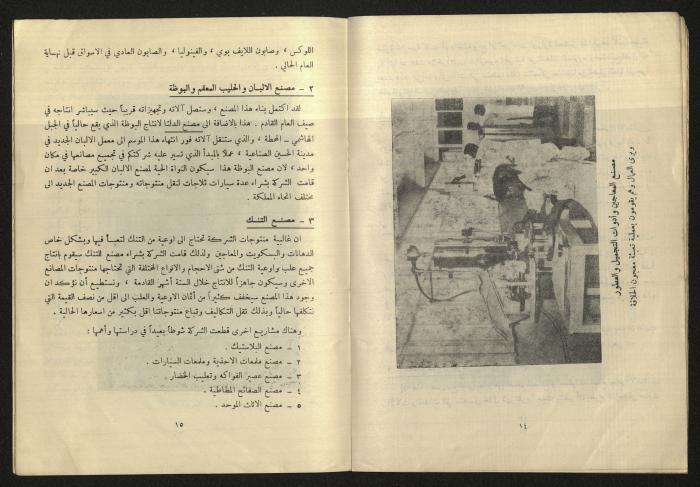 مصنع المعاجين وأدوات التجميل والعطور
ويرى العمال وهم يقومون بعملية تعبئة معجون الحلاقة
١٤
اللوكس ، وصابون اللايف بوي ، والفينوليا ، والصابون العادي في الاسواق قبل نهاية
العام الحالي .
٢ - مصنع الالبان والحليب المعقم والبوظة
لقد اكتمل بناء هذا المصنع ، وستصل آلاته وتجهيزاته قريباً حيث سيباشر انتاجه في
صيف العام القادم . هذا بالاضافة الى مصنع الدلتا لانتاج البوظة الذي يقع حالياً في الجبل
الهاشمي - المحطة ، والذي ستنقل آلاته فور انتهاء هذا الموسم الى معمل الالبان الجديد في
مدينة الحسين الصناعية ، عملاً بالمبدأ الذي تسير عليه شركتكم في تجميع مصانعها في مكان
واحد ، لان مصنع البوظة هذا سيكون النواة الحية لمصنع الالبان الكبير خاصة بعد ان
قامت الشركة بشراء عدة سيارات ثلاجات لنقل منتوجاته ومنتوجات المصنع الجديد الى
مختلف انحاء المملكة .
٣ - مصنع التنك
ان غالبية منتوجات الشركة تحتاج الى اوعية من التنك لتعبأ فيها وبشكل خاص
الدهانات والبسكويت والمعاجين ولذلك قامت الشركة بشراء مصنع للتنك سيقوم بإنتاج
جميع علب واوعية التنك من شتى الاحجام والانواع المختلفة التي تحتاجها منتوجات المصانع
الاخرى وسيكون جاهزاً للانتاج خلال الستة أشهر القادمة ، ونستطيع أن نؤكد ان
وجود هذا المصنع سيخفف كثيراً من أثمان الاوعية والعلب الى اقل من نصف القيمة التي
نتكلفها حالياً وبذلك تقل التكاليف وتباع منتوجاتنا اقل بكثير من اسعارها الحالية .
وهناك مشاريع اخرى قطعت الشركة شوطاً بعيداً في دراستها وأهمها :
١ - مصنع البلاستيك .
٢ - مصنع ملمعات الاحذية وملمعات السيارات .
٣ - مصنع عصير الفواكه وتعليب الخضار .
٤ - مصنع الصفائح المطاطية .
٥ - مصنع الاثاث الموحد .
١٥